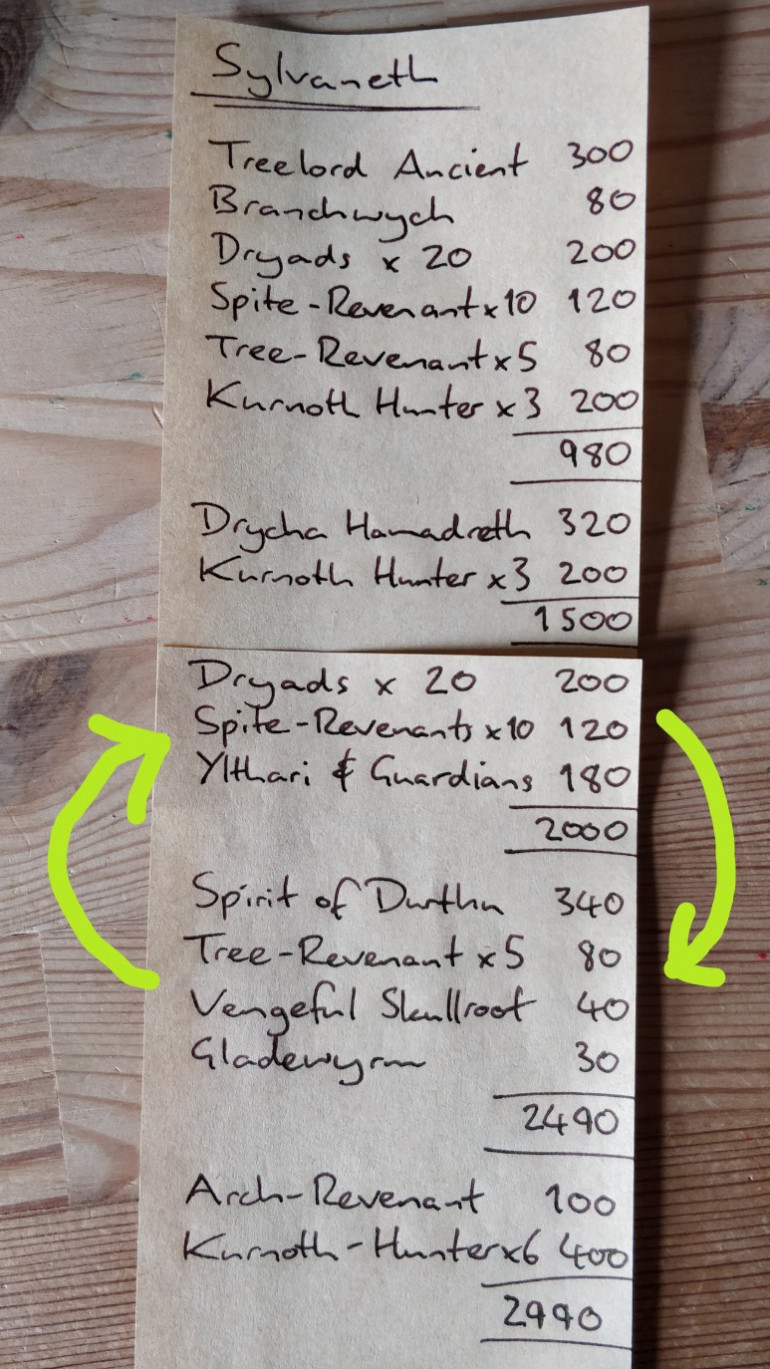 Sylvaneth
Treelord Ancient 300
Branchwych 80
Dryads x 20 200
Spite-Revenant x 10 120
Tree-Revenant x 5 80
Kurnoth Hunter x 3 200
980
Drycha Hamadreth 320
Kurnoth Hunter x 3 200
1500
Dryads x 20 200
Spite-Revenants x 10 120
Ylthari & Guardians 180
2000
Spirit of Durthu 340
Tree-Revenant x 5 80
Vengeful Skullroot 40
Gladewyrm 30
2490
Arch-Revenant 100
Kurnoth-Hunter x 6 400
2990